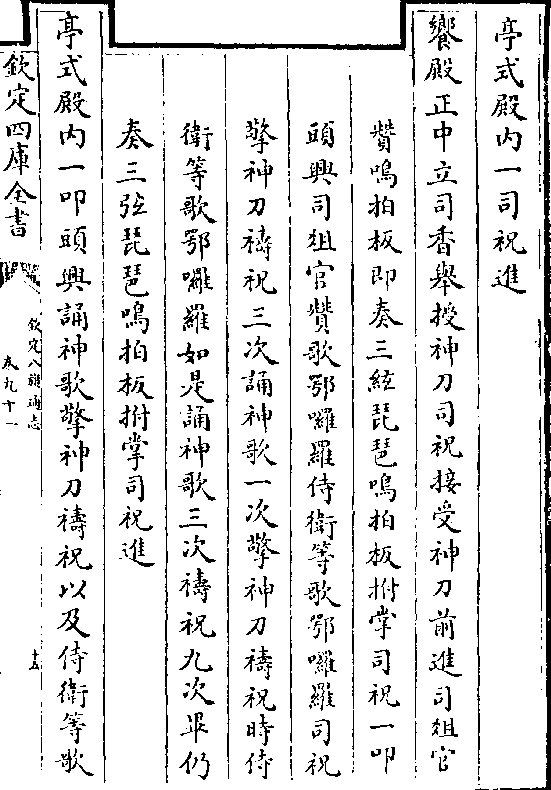 亭式殿内一司祝進
饗殿正中立司香舉授神刀司祝接受神刀前進司俎官
贊鳴拍板即奏三絃琵琶鳴拍板拊掌司祝一叩
頭興司俎官贊歌鄂囉羅侍衛等歌鄂囉羅司祝
擎神刀禱祝三次誦神歌一次擎神刀禱祝時侍
衛等歌鄂囉羅如是誦神歌三次禱祝九次畢仍
奏三弦琵琶鳴拍板拊掌司祝進
亭式殿内一叩頭興誦神歌擎神刀禱祝以及侍衛等歌
欽定四庫全書
欽定八旗通志
卷九十一
十五